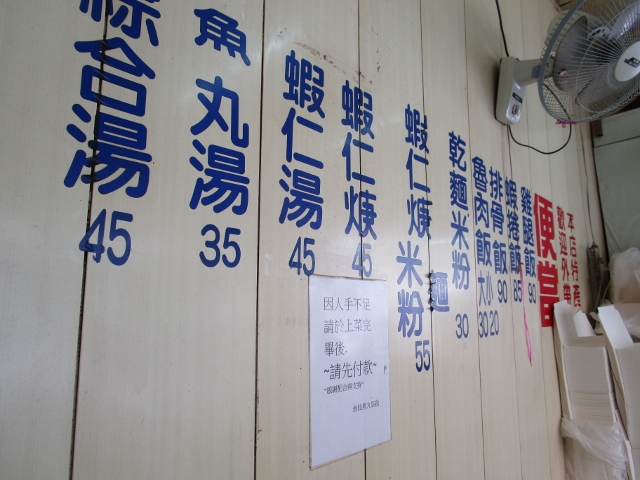 綜合湯 45
魚丸湯 35
蝦仁湯 45
蝦仁焿 45
蝦仁焿米粉 麵 55
乾麵米粉 30
魯肉飯 大30 小20
排骨飯 90
蝦捲飯 85
雞腿飯 90
便當
歡迎外帶
本店特產
因人手不足
請於上菜完
畢後.
~請先付款~
~感謝配合與支持~